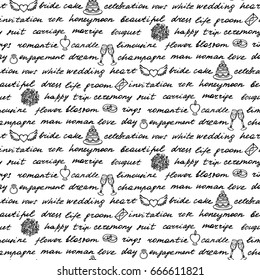 bride cake celebration vows white wedding heart
invitation rok honeymoon beautiful dress life groom
happy trip ceremony suit carriage marrige bouquet
rings romantic candle limouzine flower blossom
day engagement dream champagne man woman love
heart bride cake celebration vows white wedding
dress life groom invitation rok honeymoon beautiful
ry suit carriage marrige bouquet happy trip ceremony
rings romantic candle limouzine flower blossom
man woman love day engagement dream champagne
bride cake celebration vows white wedding heart
invitation rok honeymoon beautiful dress life groom
happy trip ceremony suit carriage marrige bouquet
rings romantic candle limouzine flower blossom
day engagement dream champagne man woman love
heart bride cake celebration vows white wedding
dress life groom invitation rok honeymoon be
ry suit carriage marrige bouquet happy trip ceremony
limouzine flower blossom rings romantic
man woman love day engagement dream champagne
666611821